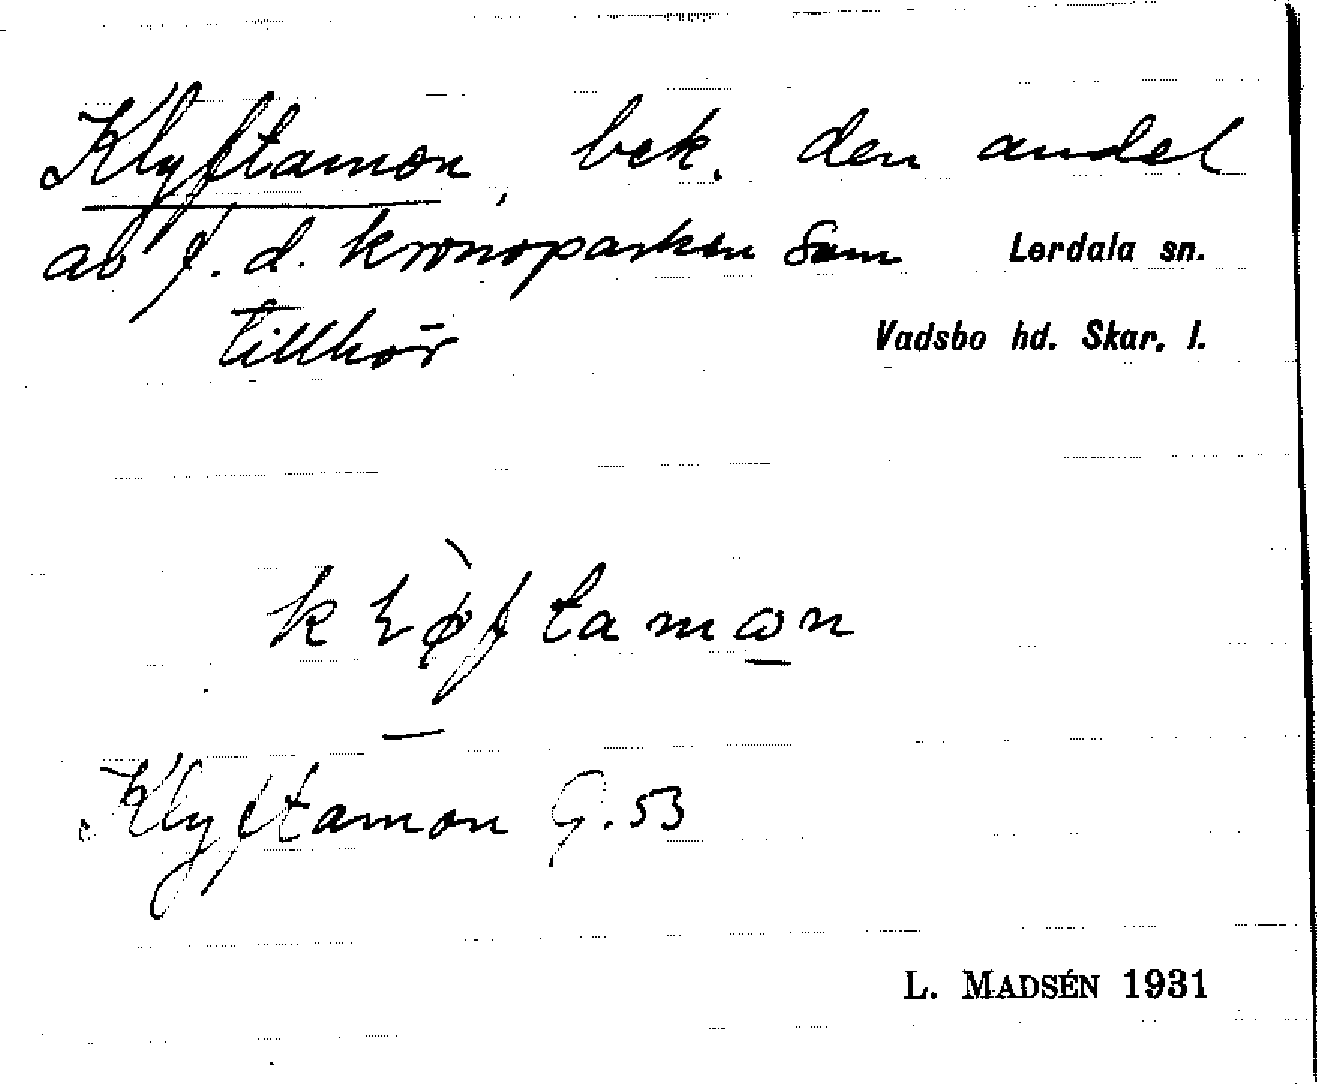 Klyftamon, bek. den andel
av f. d. kronoparken som
Lerdala sn.
tillhör
Vadsbo hd. Skar. l.
Klyftamon G. 53
L. MADSÉN 1931